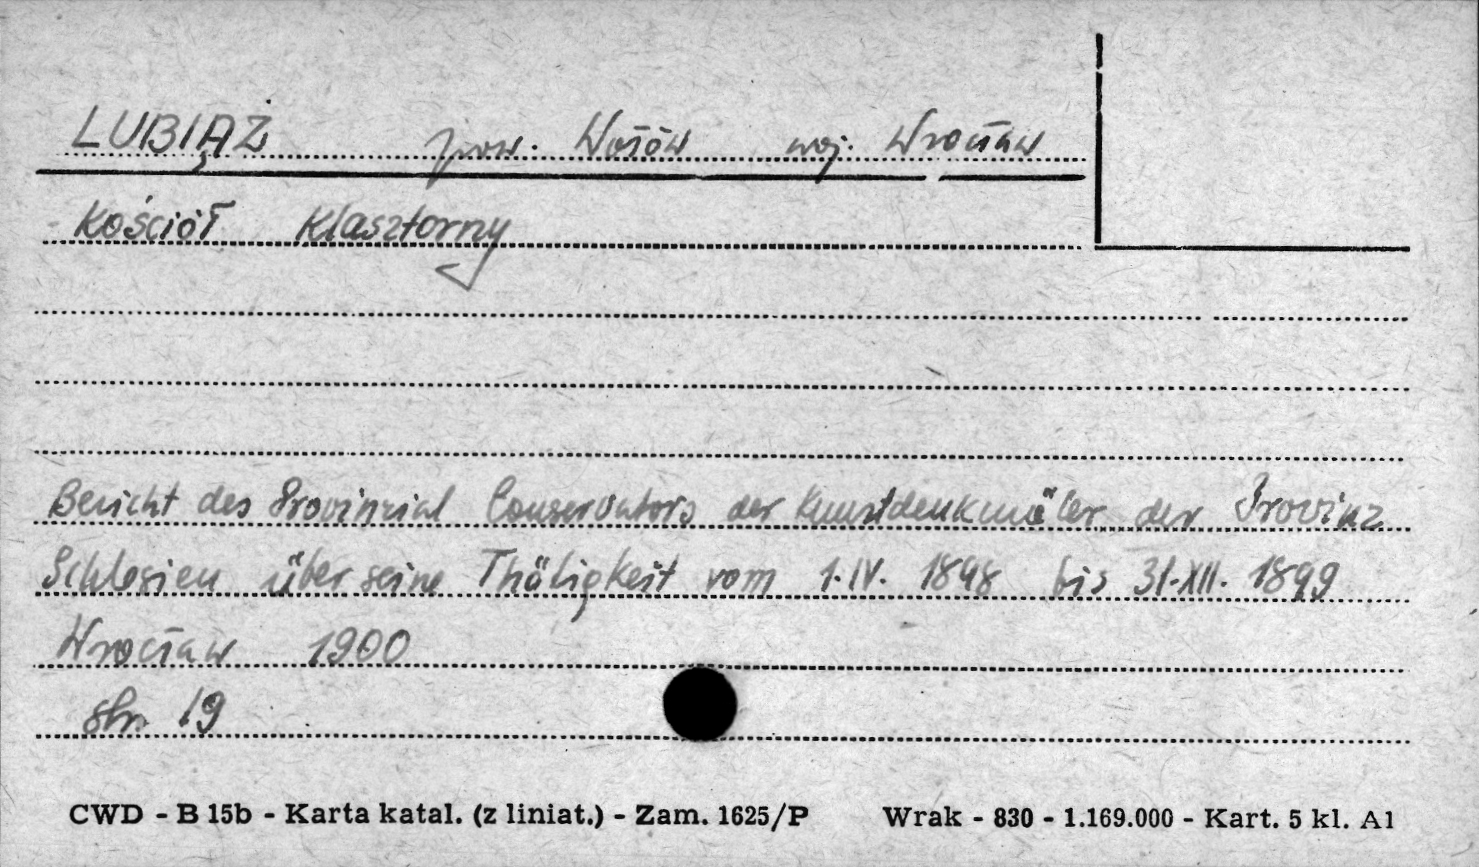 LUBIĄŻ pow. Wołów woj. Wrocław
Kościół Klasztorny
Bericht des Provinzial Conservators der Kunstdenkmäler der Provinz
Schlesien über seine Thätigkeit vom 1.IV. 1898 bis 31.XII. 1899
Wrocław 1900
str. 19
CWD - B 15b - Karta katal. (z liniat.) - Zam. 1625/P Wrak - 830 - 1.169.000 - Kart. 5 kl. A1